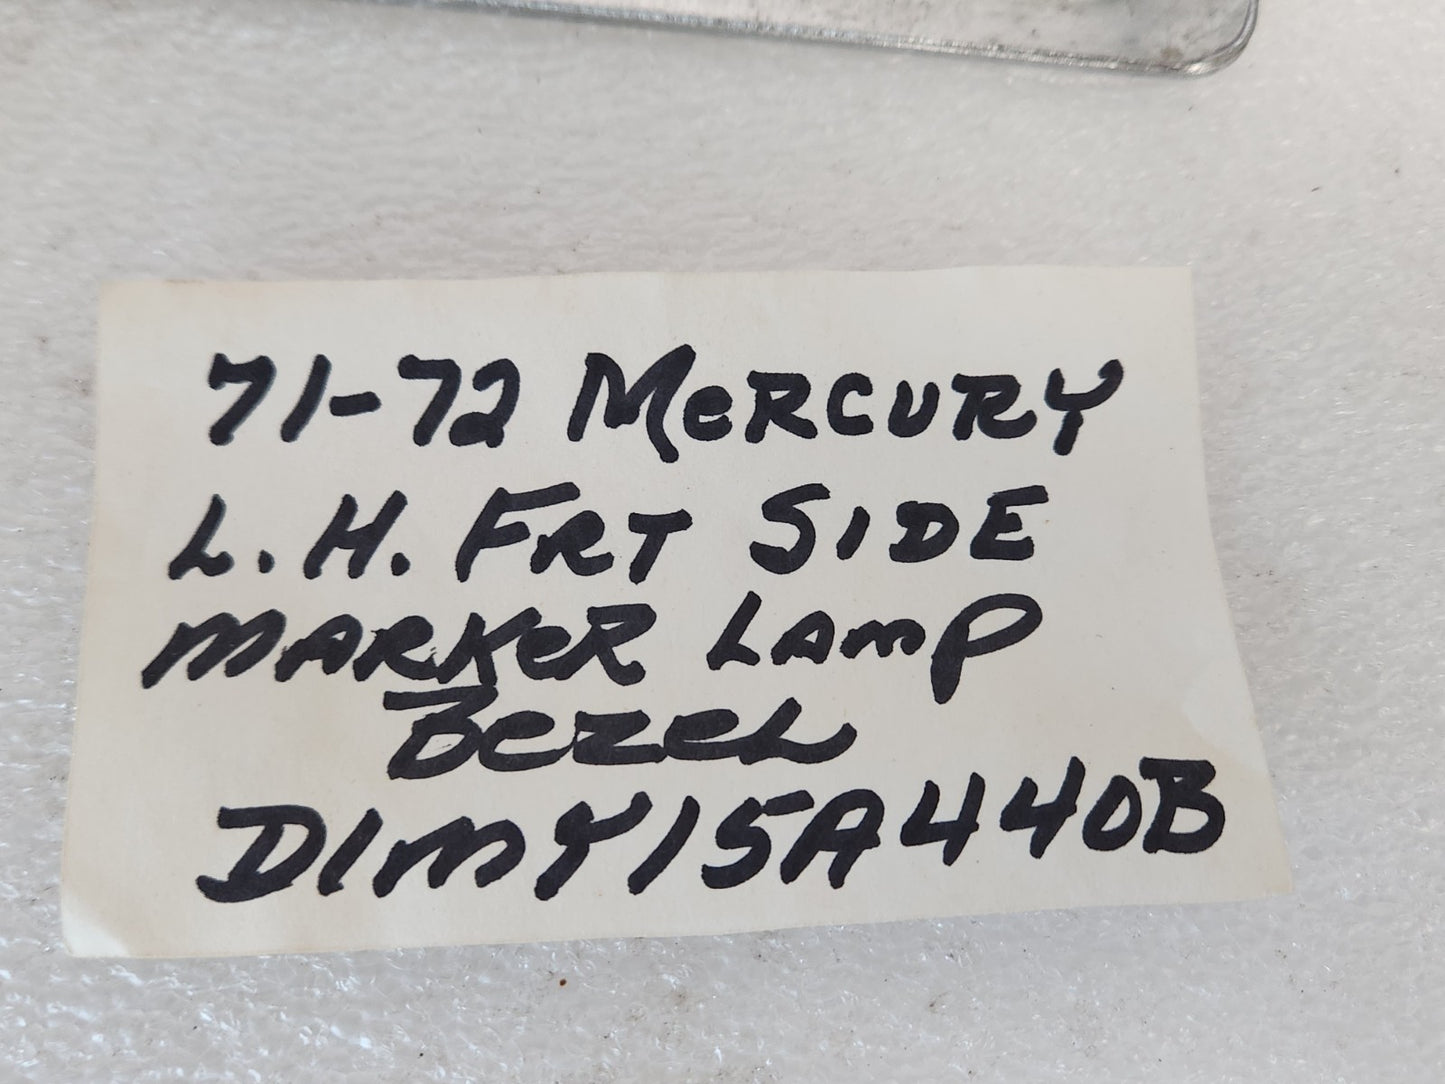 71-72 MeRCURY
L.H. FRT SIDE
MARKeR LAMP
BezeL
D1MY15A440B